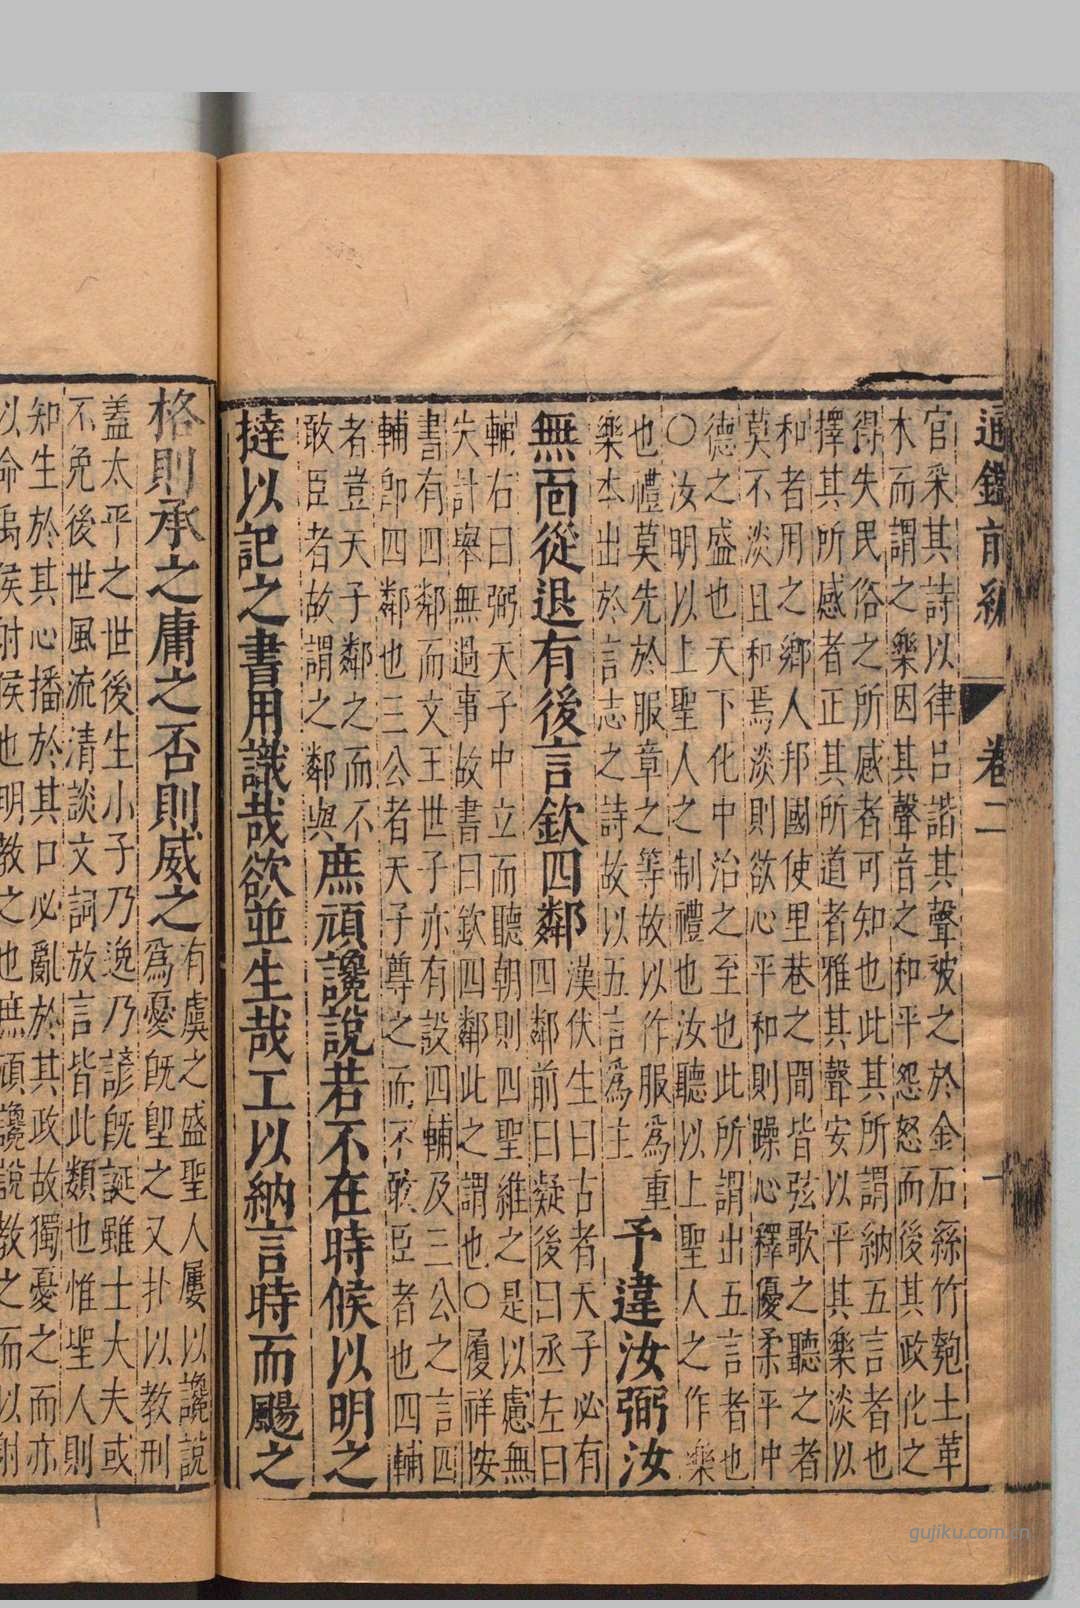 通鑑前編 卷二 一
官采其詩以律呂諧其聲被之於金石絲竹匏土革
木而謂之樂因其聲音之和平怨怒而後其政化之
得失民俗之所感者可知也此其所謂納五言者也
擇其所感者正其所道者雅其聲安以平其樂淡以
和者用之鄉人邦國使里巷之間皆弦歌之聽之者
莫不淡且和焉淡則欲心平和則躁心釋優柔平中
德之盛也天下化中治之至也此所謂出五言者也
〇汝明以上聖人之制禮也汝聽以上聖人之作樂
也禮莫先於服章之等故以作服爲重
樂本出於言志之詩故以五言爲主
予違汝弼汝
無面從退有後言欽四鄰
漢伏生曰古者天子必有
四鄰前曰疑後曰丞左曰
輔右曰弼天子中立而聽朝則四聖維之是以慮無
失計舉無過事故書曰欽四鄰此之謂也〇履祥按
書有四鄰而文王世子亦有設四輔及三公之言四
輔卽四鄰也三公者天子尊之而不敢臣者也四輔
者豈天子鄰之而不
敢臣者故謂之鄰與
庶頑讒說若不在時候以明之
撻以記之書用識哉欲並生哉工以納言時而颺之
格則承之庸之否則威之
有虞之盛聖人屢以讒說
爲憂旣堲之又扑以教刑
蓋太平之世後生小子乃逸乃諺旣誕雖士大夫或
不免後世風流清談文詞放言皆此類也惟聖人則
知生於其心播於其口必亂於其政故獨憂之而亦
以命禹侯射侯也明教之也庶頑讒說教之而以射
gujiku.com.cn